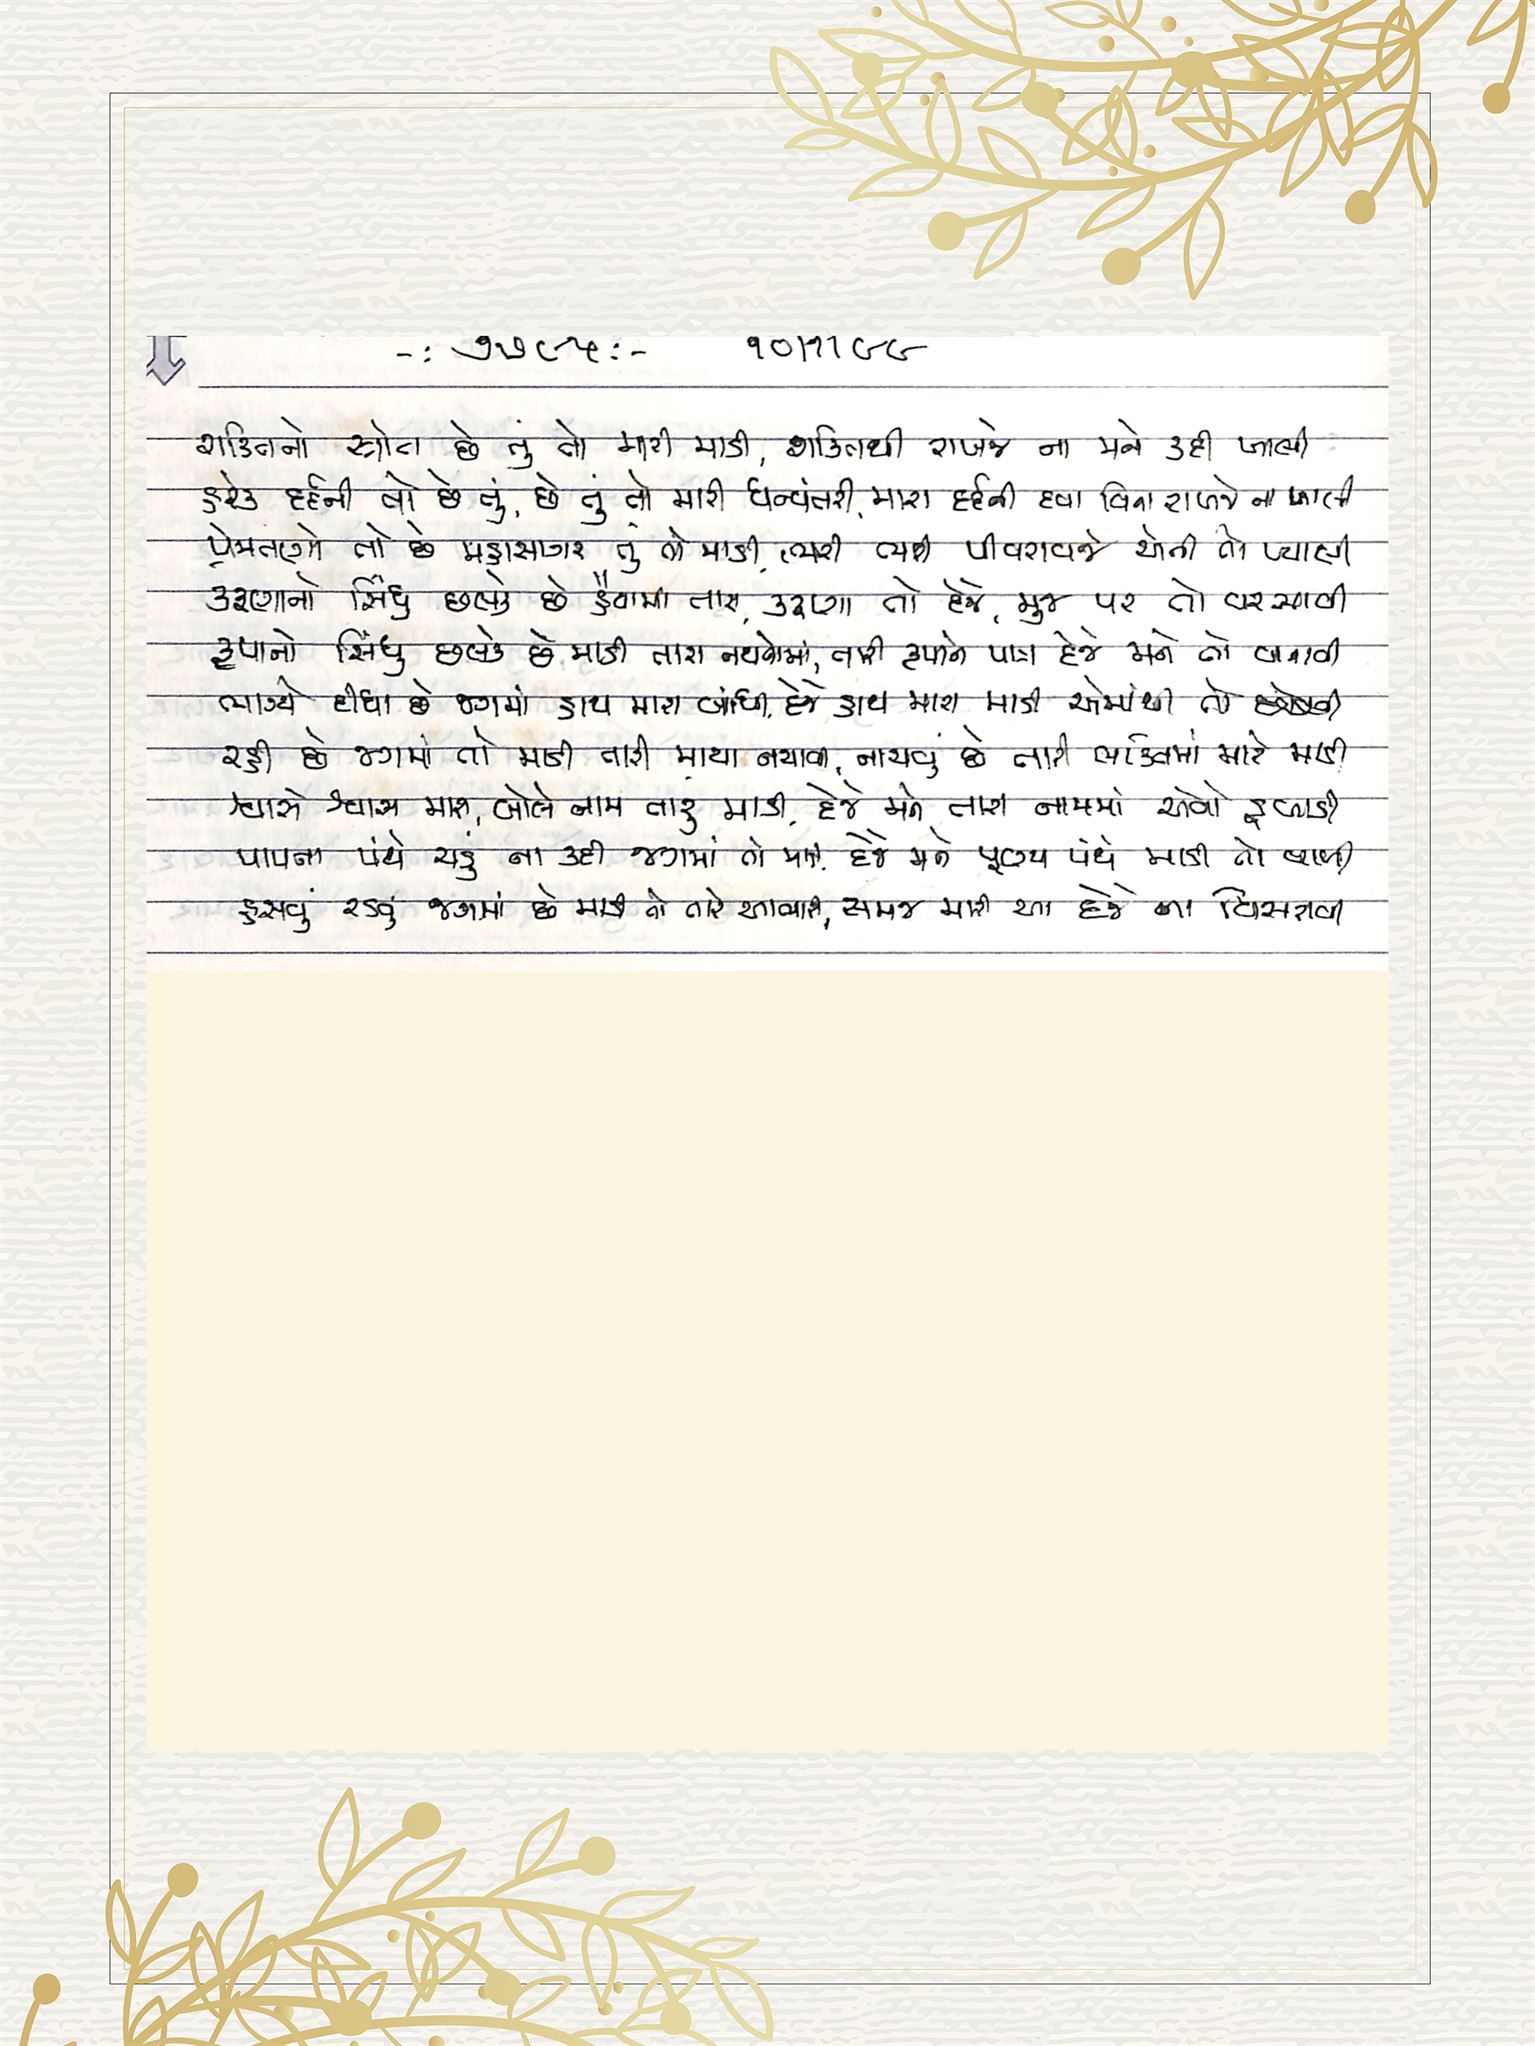 -: ૭૭૯૫ :- ૧૦/૧/૯૯
શક્તિનો સ્ત્રોત છે તું તો મારી માડી, શક્તિથી રાખજે ના મને કદી ખાલી
હરેક દર્દની તો છે તું, છે તું તો મારી ધન્વંતરી, મારા દર્દની દવા વિના રાખજે ના ખાલી
પ્રેમતણો તો છે મહાસાગર તું તો માડી, ભરી ભરી પીવરાવજે એની તો પ્યાલી
કરૂણાનો સિંધુ છલકે છે હૈયામાં તારા, કરૂણા તો દેજે, મુજ પર તો વરસાવી
કૃપાનો સિંધુ છલકે છે માડી તારા નયનોમાં, તારી કૃપાને પાત્ર દેજે મને તો બનાવી
ભાગ્યે દીધા છે જગમાં હાથ મારા બાંધી, દેજે હાથ મારા માડી એમાંથી તો છોડાવી
રહી છે જગમાં તો માડી તારી માયા નચાવી, નાચવું છે તારી ભક્તિમાં મારે માડી
શ્વાસે શ્વાસ મારા, બોલે નામ તારૂં માડી, દેજે મને તારા નામમાં એવો ડુબાડી
પાપના પંથે ચડું ના કદી જગમાં તો માડી, દેજે મને પુણ્ય પંથે માડી તો વાળી
હસવું રડવું જગમાં છે માડી તો તારે આભારી, સમજ મારી આ દેજે ના વિસરાવી